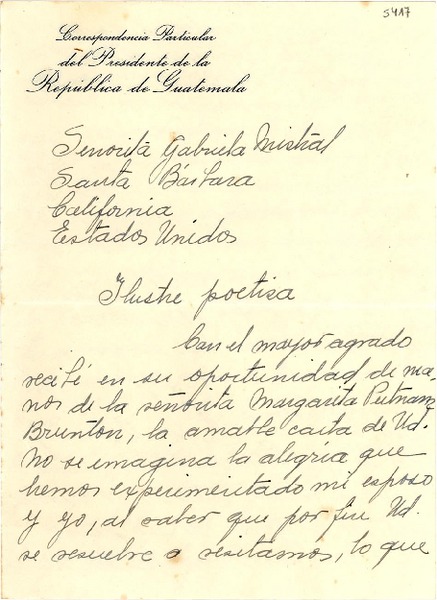 5417
Correspondencia Particular
del Presidente de la
República de Guatemala
Señorita Gabriela Mistral
Santa Bárbara
California
Estados Unidos
Ilustre poetisa
Con el mayor agrado
recibí en su oportunidad de ma-
nos de la señorita Margarita Putnam
Brunton, la amable carta de Ud.
No se imagina la alegría que
hemos experimentado mi esposo
y yo, al saber que por fin Ud.
se resuelve a visitarnos, lo que